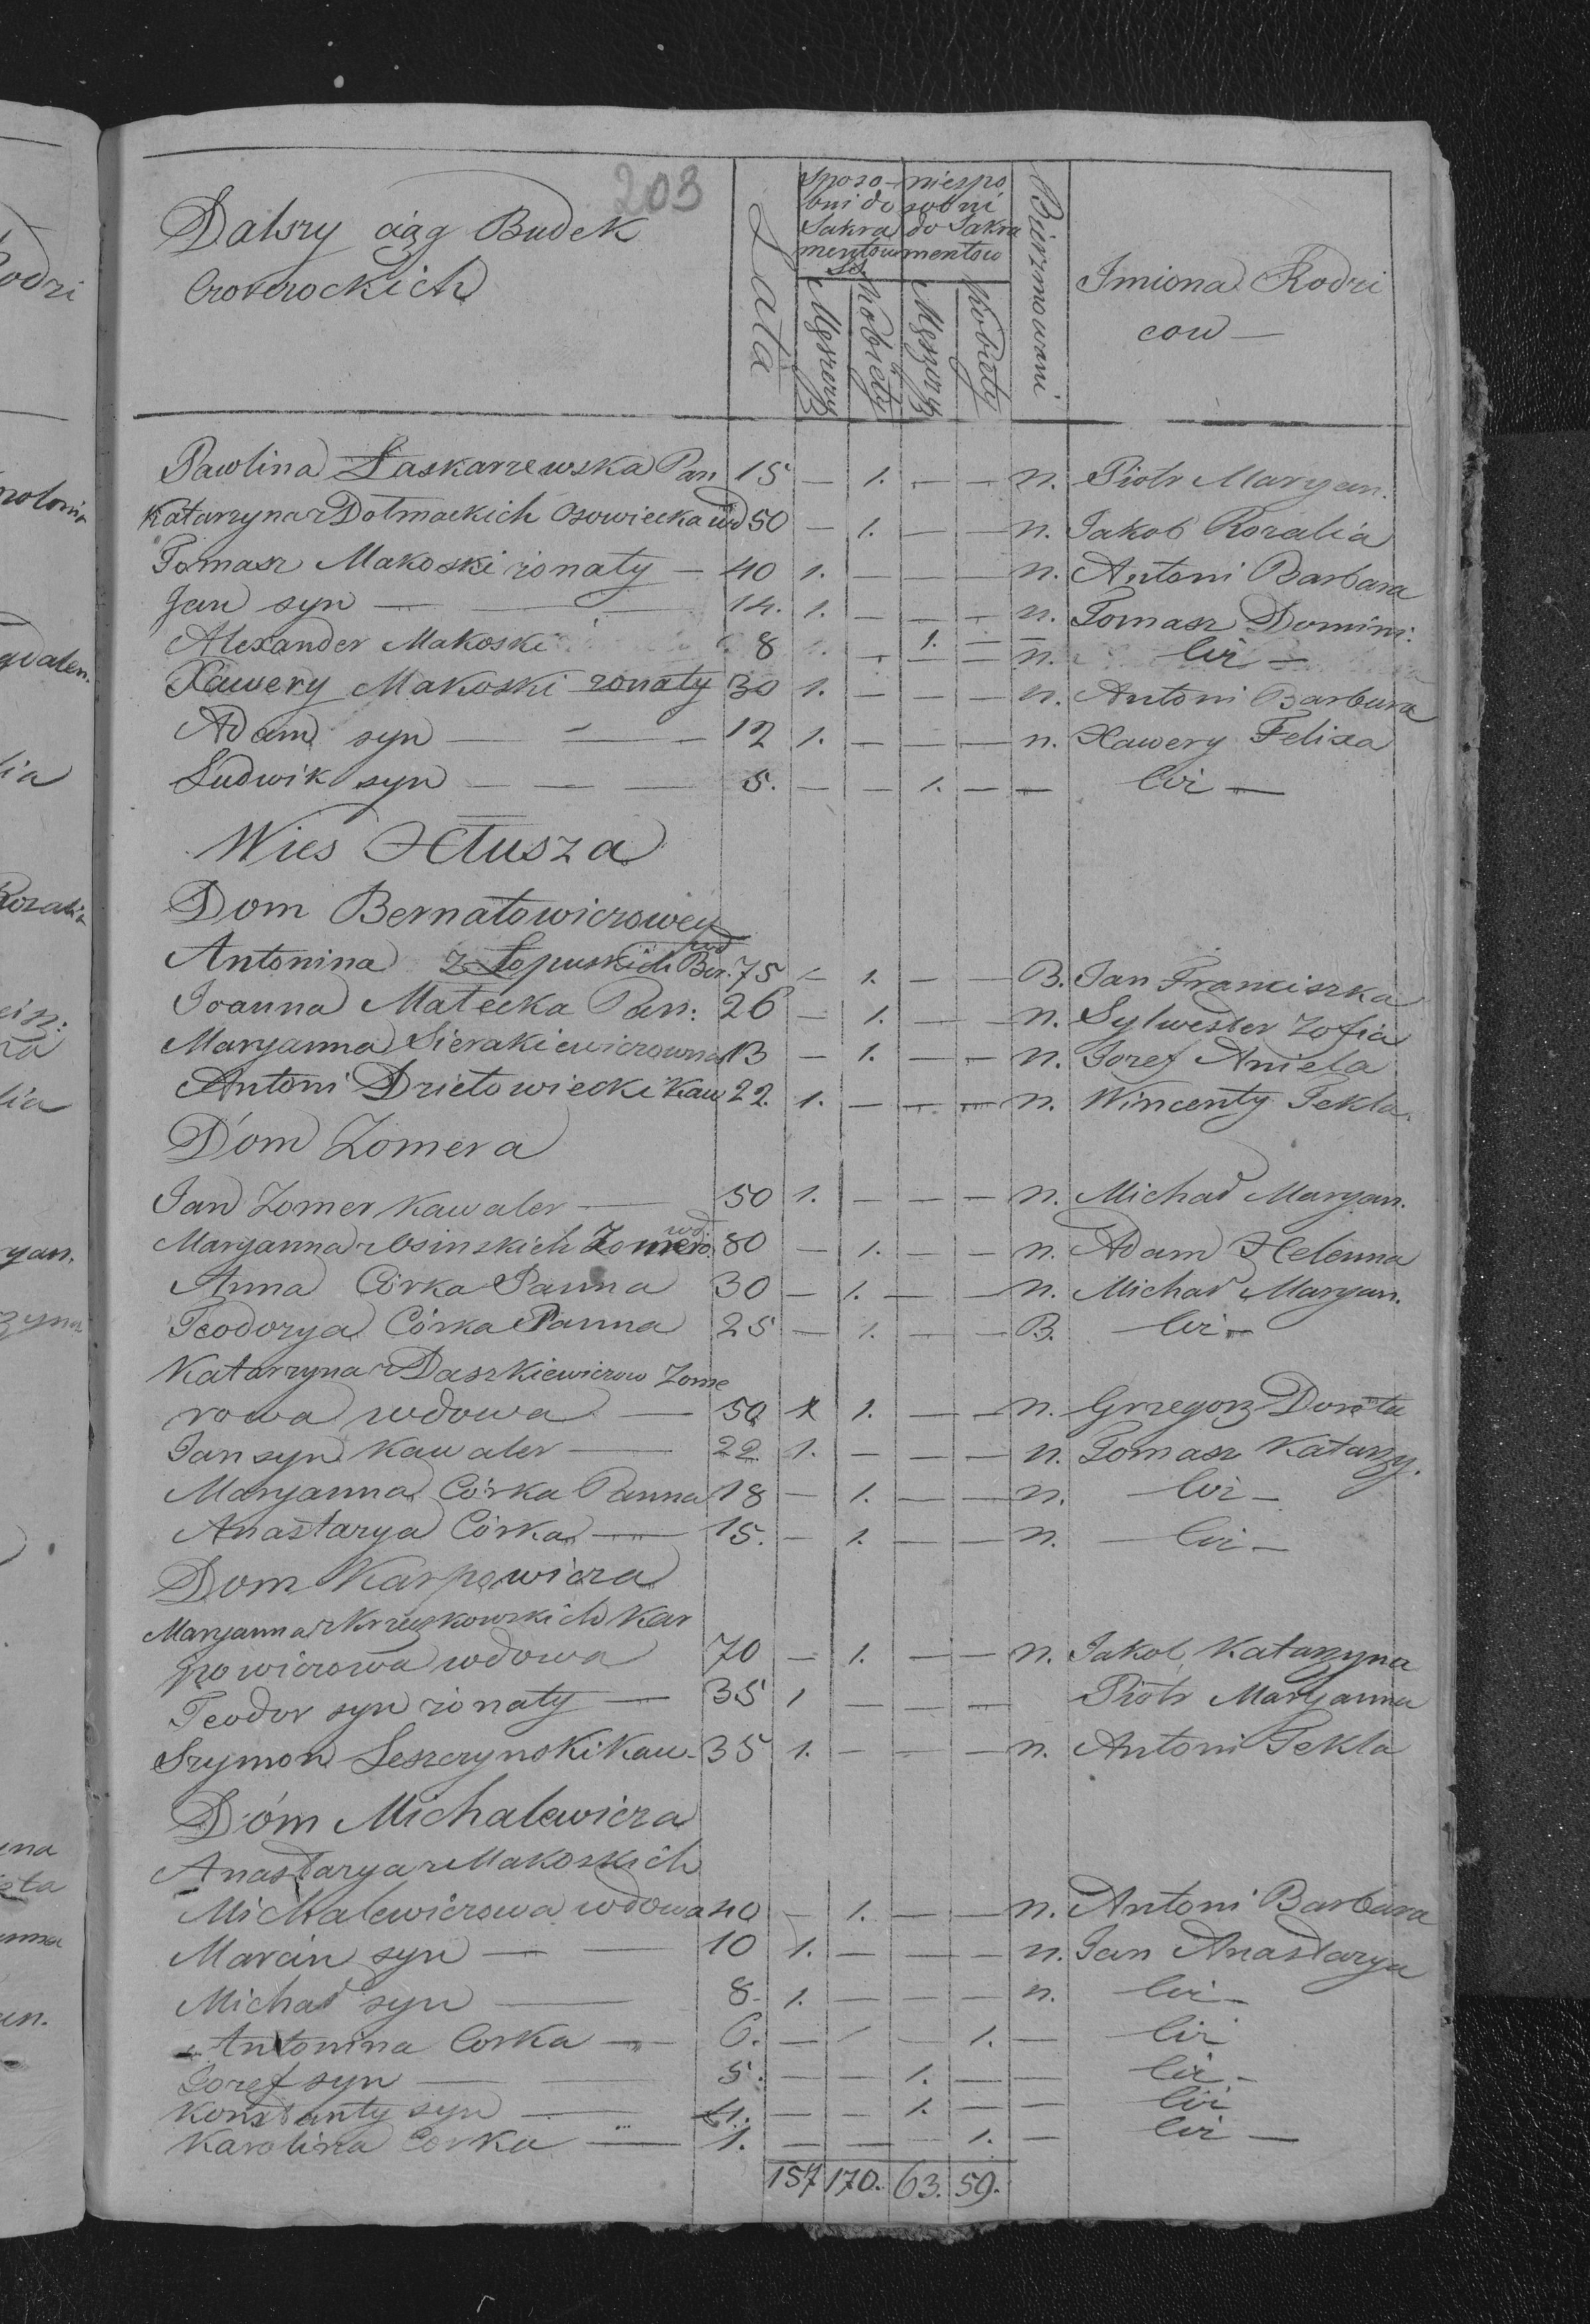 203
Dalszy ciąg Budek
Lata
Sposo- niespo
bni do sobni
Sakra do Sakra
mentow mentow
SS
Męszczyz
Kobiety
Męszczyz
Kobiety
Bierzmowani
Imiona Rodzi
cow —
Pawlina Laskarzewska Pan. 15 — 1. — — n. Piotr Maryan.
Katarzyna z Dolmackich Osowiecka wd 50 — 1. — — n. Jakob Rozalia
Tomasz Makoski żonaty — 40 1. — — — n. Antoni Barbara
Jan syn — — 14. 1. — — — n. Tomasz Domini.
Alexander Makoski 8 1. — 1. — — n. ciż —
Xawery Makoski żonaty 30 1. — — — n. Antoni Barbara
Adam syn — — — 12 1. — — — n. Xawery Felixa
Ludwik syn — — — 5. — — 1. — — ciż —
Wies Hłusza
Dom Bernatowiczowey
Antonina z Łopuskich Ber. wd 75 — 1. — — B. Jan Franciszka
Joanna Małecka Pan: 26 — 1. — — n. Sylwester Zofia
Maryanna Sierakiewiczowna 13 — 1. — — n. Jozef Aniela
Antoni Dzietowiecki Kaw 22. 1. — — — n. Wincenty Tekla.
Dóm Zomera
Jan Zomer Kawaler — 50 1. — — — n. Michał Maryan.
Maryanna z Osinskich Zomero. wd. 80 — 1. — — n. Adam Helenna
Anna Córka Panna 30 — 1. — — n. Michał Maryan.
Teodozya Córka Panna 25 — 1. — — B. ciż —
Katarzyna z Daszkiewiczow Zome
rowa wdowa — 50 1. — — n. Grzegorz Dorota
Jan syn Kawaler — 22 1. — — — n. Tomasz Katarzy.
Maryanna Córka Panna 18 — 1. — — n. ciż —
Anastazya Córka — 15. — 1. — — n. — ciż —
Dom Karpowicza
Maryanna z Kar
powiczowa wdowa 70 — 1. — — n. Jakob Katarzyna
Teodor syn żonaty — 35 1 — — — Piotr Maryanna
Szymon Leszczynski Kaw. 35 1. — — — n. Antoni Tekla
Dóm Michalewicza
Anastazya z Makoskich
Michalewiczowa wdowa 40 — 1. — — n. Antoni Barbara
Marcin syn — — 10 1. — — — n. Jan Anastazya
Michał syn — 8. 1. — — — n. ciż —
Antonina Corka — 6. — — — 1. — ciż
Jozef syn — — 5. — — 1. — — ciż —
Konstanty syn — 4. — — 1. — — ciż
Karolina Corka — 1. — — — 1. — ciż —
157 170. 63. 59.